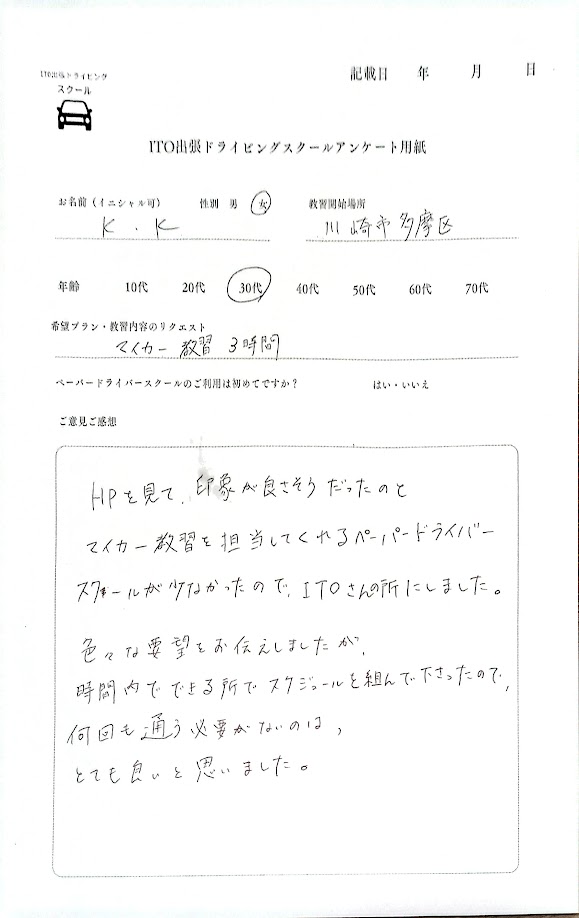 ITO出張ドライビング
スクール
記載日 年 月 日
ITO出張ドライビングスクールアンケート用紙
お名前（イニシャル可） 性別 男 女 教習開始場所
K.K 川崎市多摩区
年齢 10代 20代 30代 40代 50代 60代 70代
希望プラン・教習内容のリクエスト
マイカー教習 3時間
ペーパードライバースクールのご利用は初めてですか？ はい・いいえ
ご意見ご感想
HPを見て、印象が良さそうだったのと
マイカー教習を担当してくれるペーパードライバー
スクールが少なかったので、ITOさんの所にしました。
色々な要望をお伝えしましたが、
時間内でできる所でスケジュールを組んで下さったので、
何回も通う必要がないのは、
とても良いと思いました。